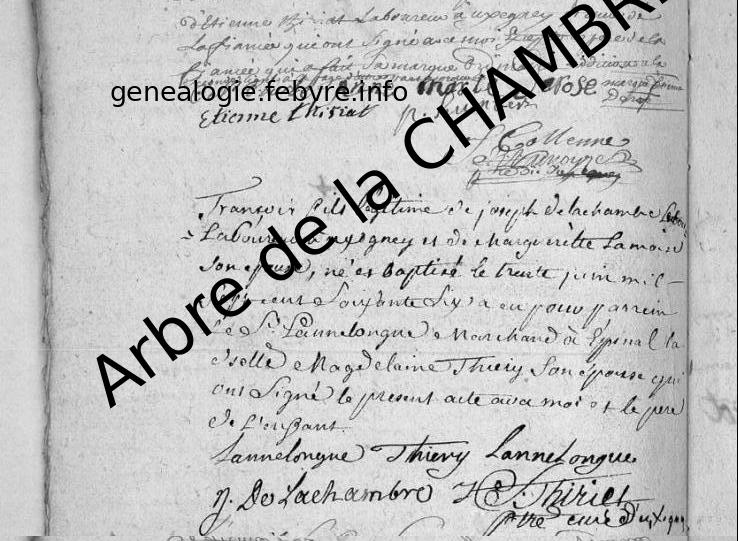 d'Etienne Thiriat Laboureur à uxegney
La fiancée qui ont signé avec moi
fiancée qui a fait sa marque
genealogie.febvre.info
marque
Etienne thiriat
Collenne
Arbre de la CHAMBRE
François fils legitime de joseph delachambre
Laboureur a uxegney et de Margueritte Lamoise
Son epouse, né et baptisé le trente juin mil
sept cent Soixante Six a eu pour parrein
le Sr. Lannelongue Marchand à Epinal la
dselle Magdelaine Thiery Son epouse qui
ont Signé le present acte avec moi et le pere
de l'enfant
Lannelongue Thiery Lannelongue
J. De Lachambre Thiriet
ptre curé d'uxegney